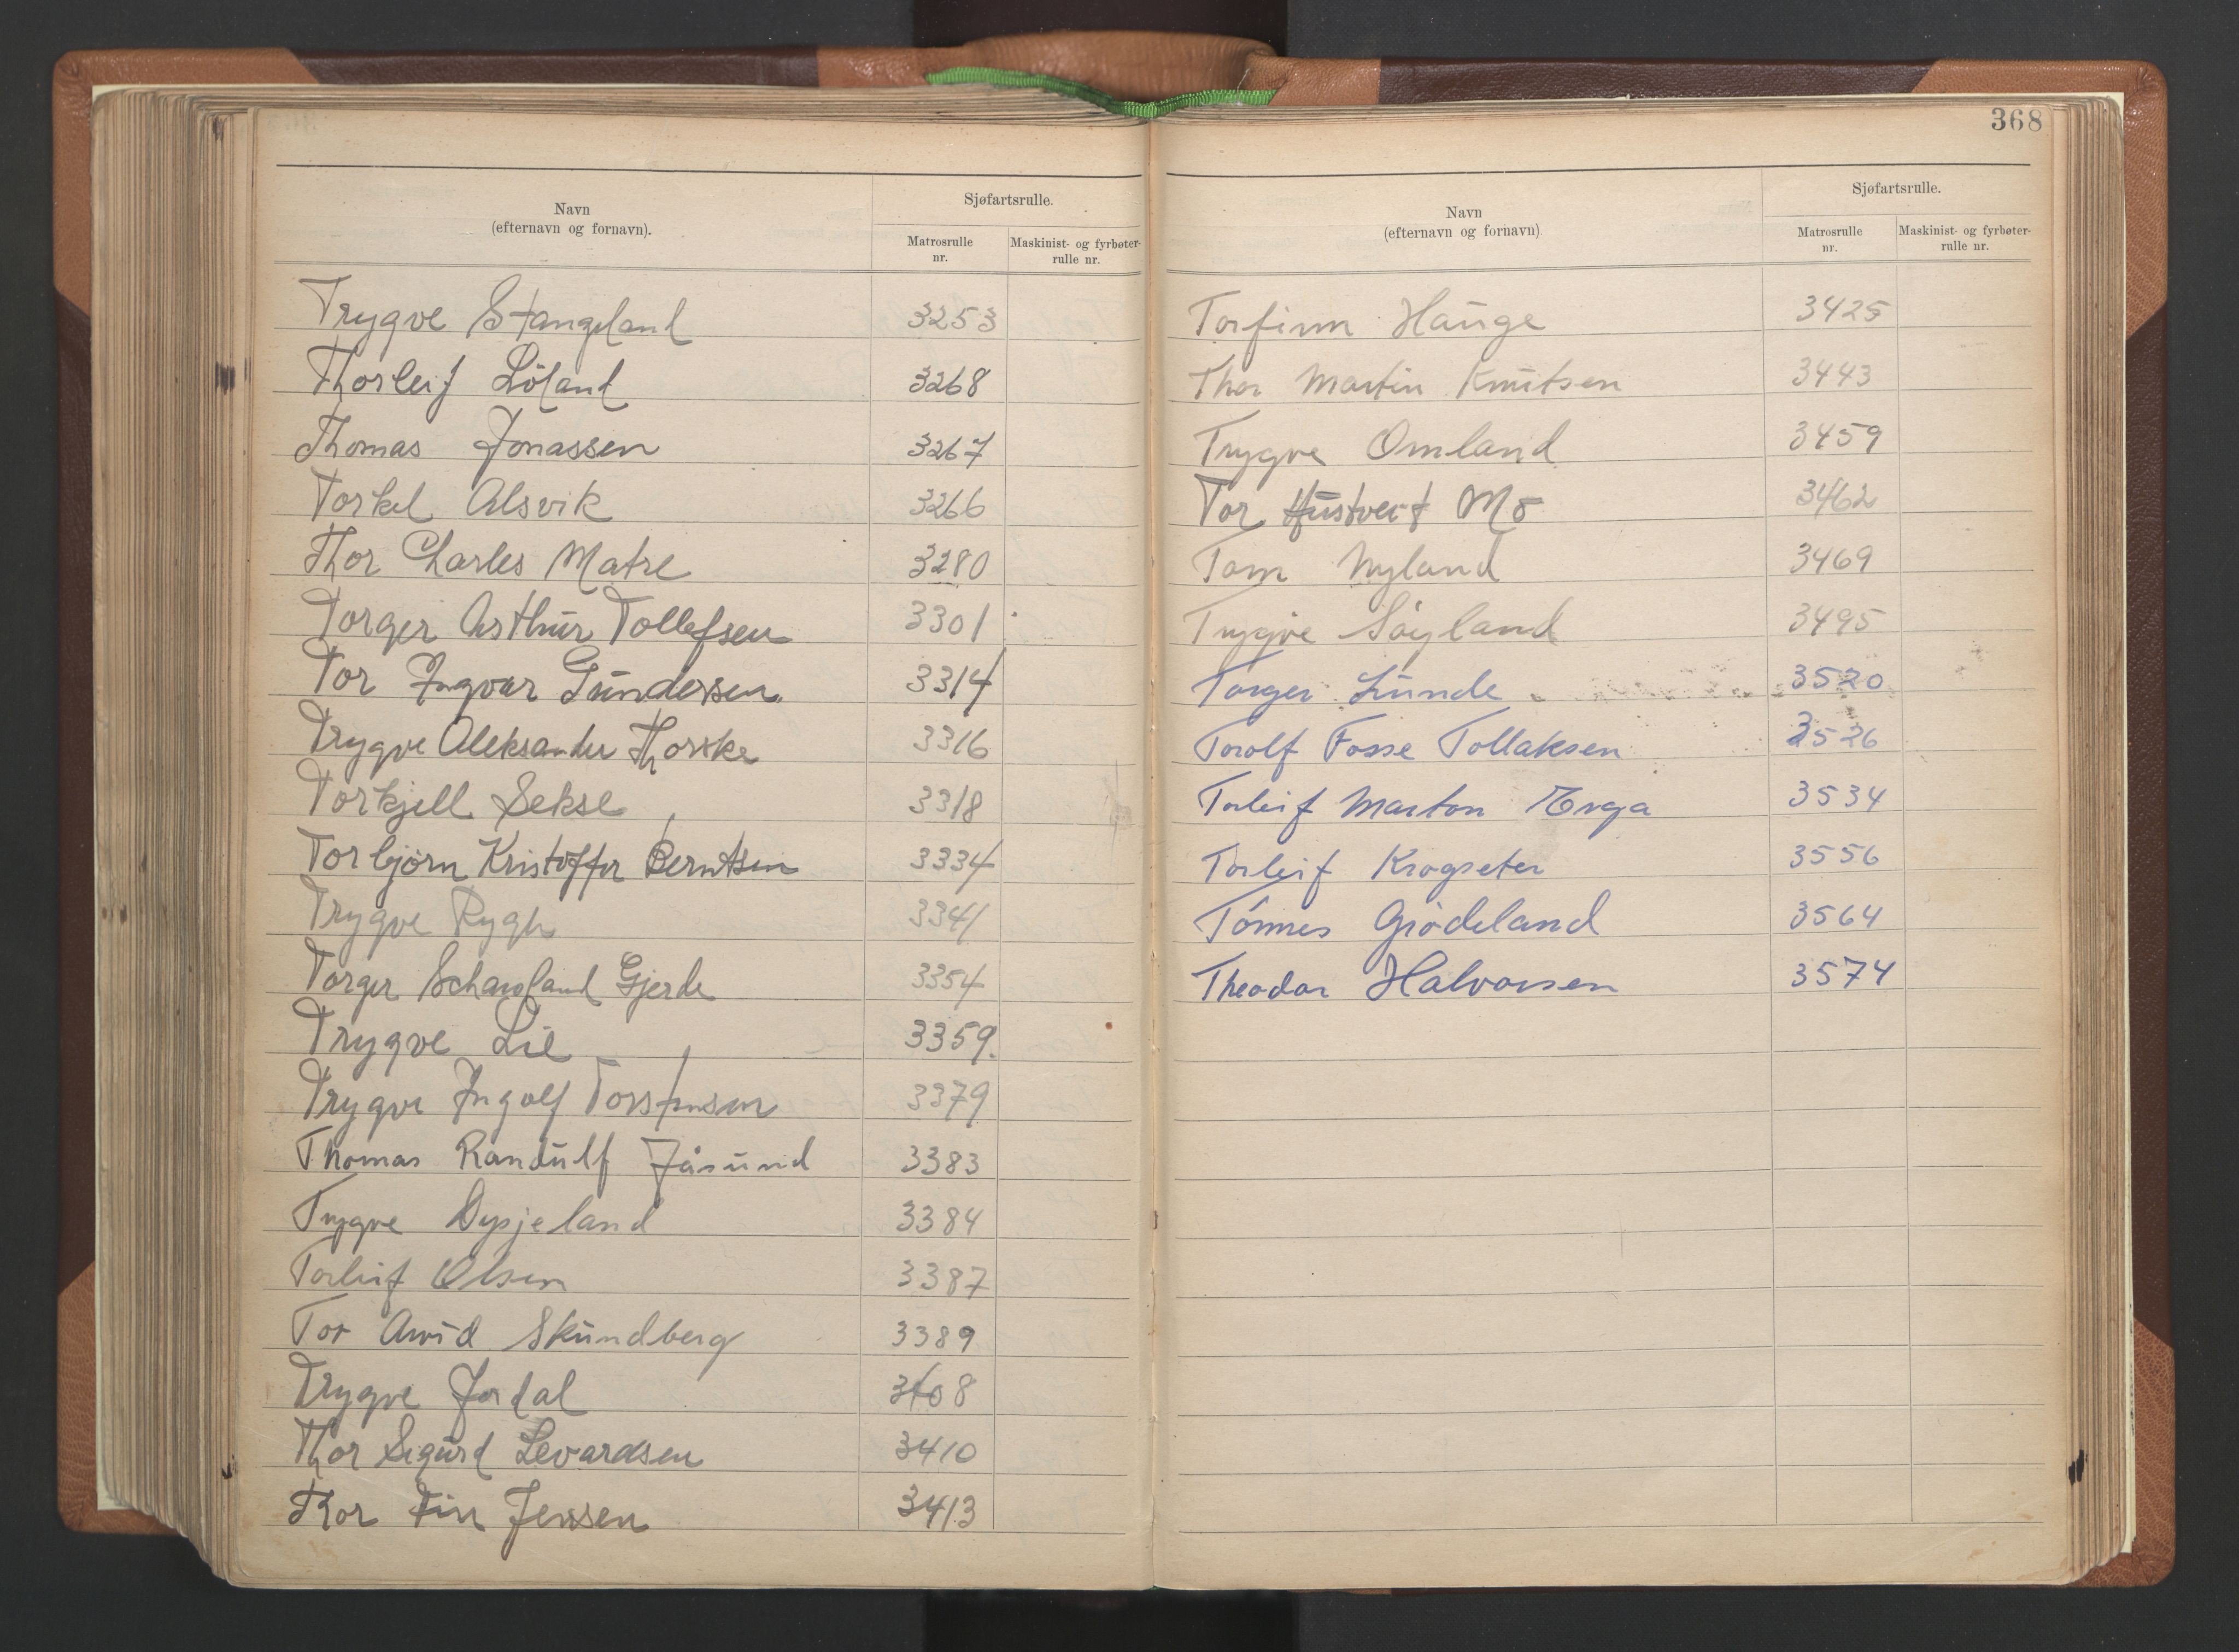 Navn
(efternavn og fornavn).
Sjøfartsrulle.
Matrosrulle nr.
Maskinist- og fyrbøter-rulle nr.
Trygve Stangeland 3253
Thorleif Löland 3268
Thomas Jonassen 3267
Torkel Alsvik 3266
Thor Charles Matre 3280
Torger Arthur Tollefsen 3301
Tor Ingvar Gundersen 3314
Trygve Aleksander Thorske 3316
Torkjell Sekse 3318
Torbjörn Kristoffer Berntsen 3334
Trygve Rygh 3341
Torger Schauland Gjerde 3354
Trygve Lie 3359.
Trygve Ingolf Torstensen 3379
Thomas Randulf Jåsund 3383
Trygve Dysjeland 3384
Torleif Olsen 3387
Tor Arvid Skundberg 3389
Trygve Jordal 3408
Thor Sigurd Levardsen 3410
Thor Finn Jenssen 3413
368
Navn
(efternavn og fornavn).
Sjøfartsrulle.
Matrosrulle nr.
Maskinist- og fyrbøter-rulle nr.
Torfinn Hauge 3425
Thor Martin Knutsen 3443
Trygve Omland 3459
Tor Hustveit Mo 3462
Tom Nyland 3469
Trygve Søyland 3495
Torger Lunde 3520
Torolf Fosse Tollaksen 3526
Torleif Marton Erga 3534
Torleif Krogseter 3556
Tönnes Grödeland 3564
Theodor Halvorsen 3574